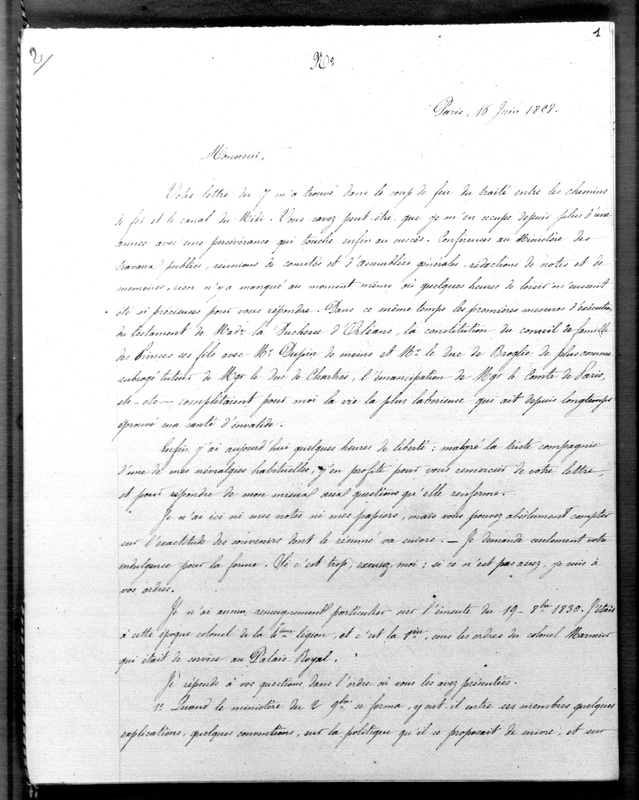 2/
1
Nº
Paris, 16 Juin 1858.
Monsieur,
Votre lettre du 7 m'a trouvé dans le coup de feu du traité entre les chemins
de fer et le canal du Midi. Vous savez peut-être, que je m'en occupe depuis plus d'une
année avec une persévérance qui touche enfin au succès. Conférences au Ministère des
travaux publics, réunions de comités et d'assemblées générales, rédactions de notes et de
mémoires, rien n'y a manqué au moment même où quelques heures de loisir m'eussent
été si précieuses pour vous répondre. Dans ce même temps les premières mesures d'exécution
du testament de Made la Duchesse d'Orléans, la constitution du conseil de famille
des Princes ses fils avec Mr Dupin de moins et Mr le duc de Broglie de plus comme
subrogé tuteur de Mgr le duc de Chartres, l'émancipation de Mgr le Comte de Paris,
etc - etc — complétaient pour moi la vie la plus laborieuse qui ait depuis longtemps
éprouvé ma santé d'invalide.
Enfin j'ai aujourd'hui quelques heures de liberté ; malgré la triste compagnie
d'une de mes névralgies habituelles, j'en profite pour vous remercier de votre lettre
et pour répondre de mon mieux aux questions qu'elle renferme.
Je n'ai ici ni mes notes ni mes papiers, mais vous pouvez absolument compter
sur l'exactitude des souvenirs dont le résumé va suivre. — Je demande seulement votre
indulgence pour la forme. Si c'est trop, excusez moi ; si ce n'est pas assez, je suis à
vos ordres.
Je n'ai aucun renseignement particulier sur l'émeute du 19 - 8bre 1830. J'étais
à cette époque colonel de la 4ème légion, et c'est la 1ère, sous les ordres du colonel Marmier
qui était de service au Palais Royal.
Je réponds à vos questions dans l'ordre où vous les avez présentées.
1º Quand le ministère du 2 9bre se forma, y eut-il entre ses membres quelques
explications, quelques conventions, sur la politique qu'il se proposait de suivre, et sur